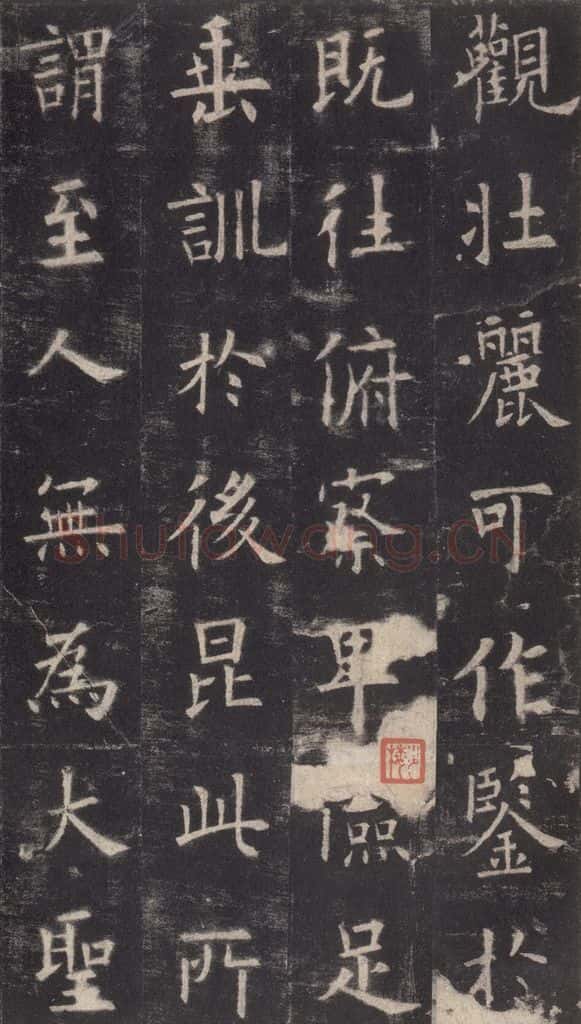 觀壯麗可作鑒於
既往俯察卑儉足
垂訓於後昆此所
謂至人無為大聖
Shufawang.CN